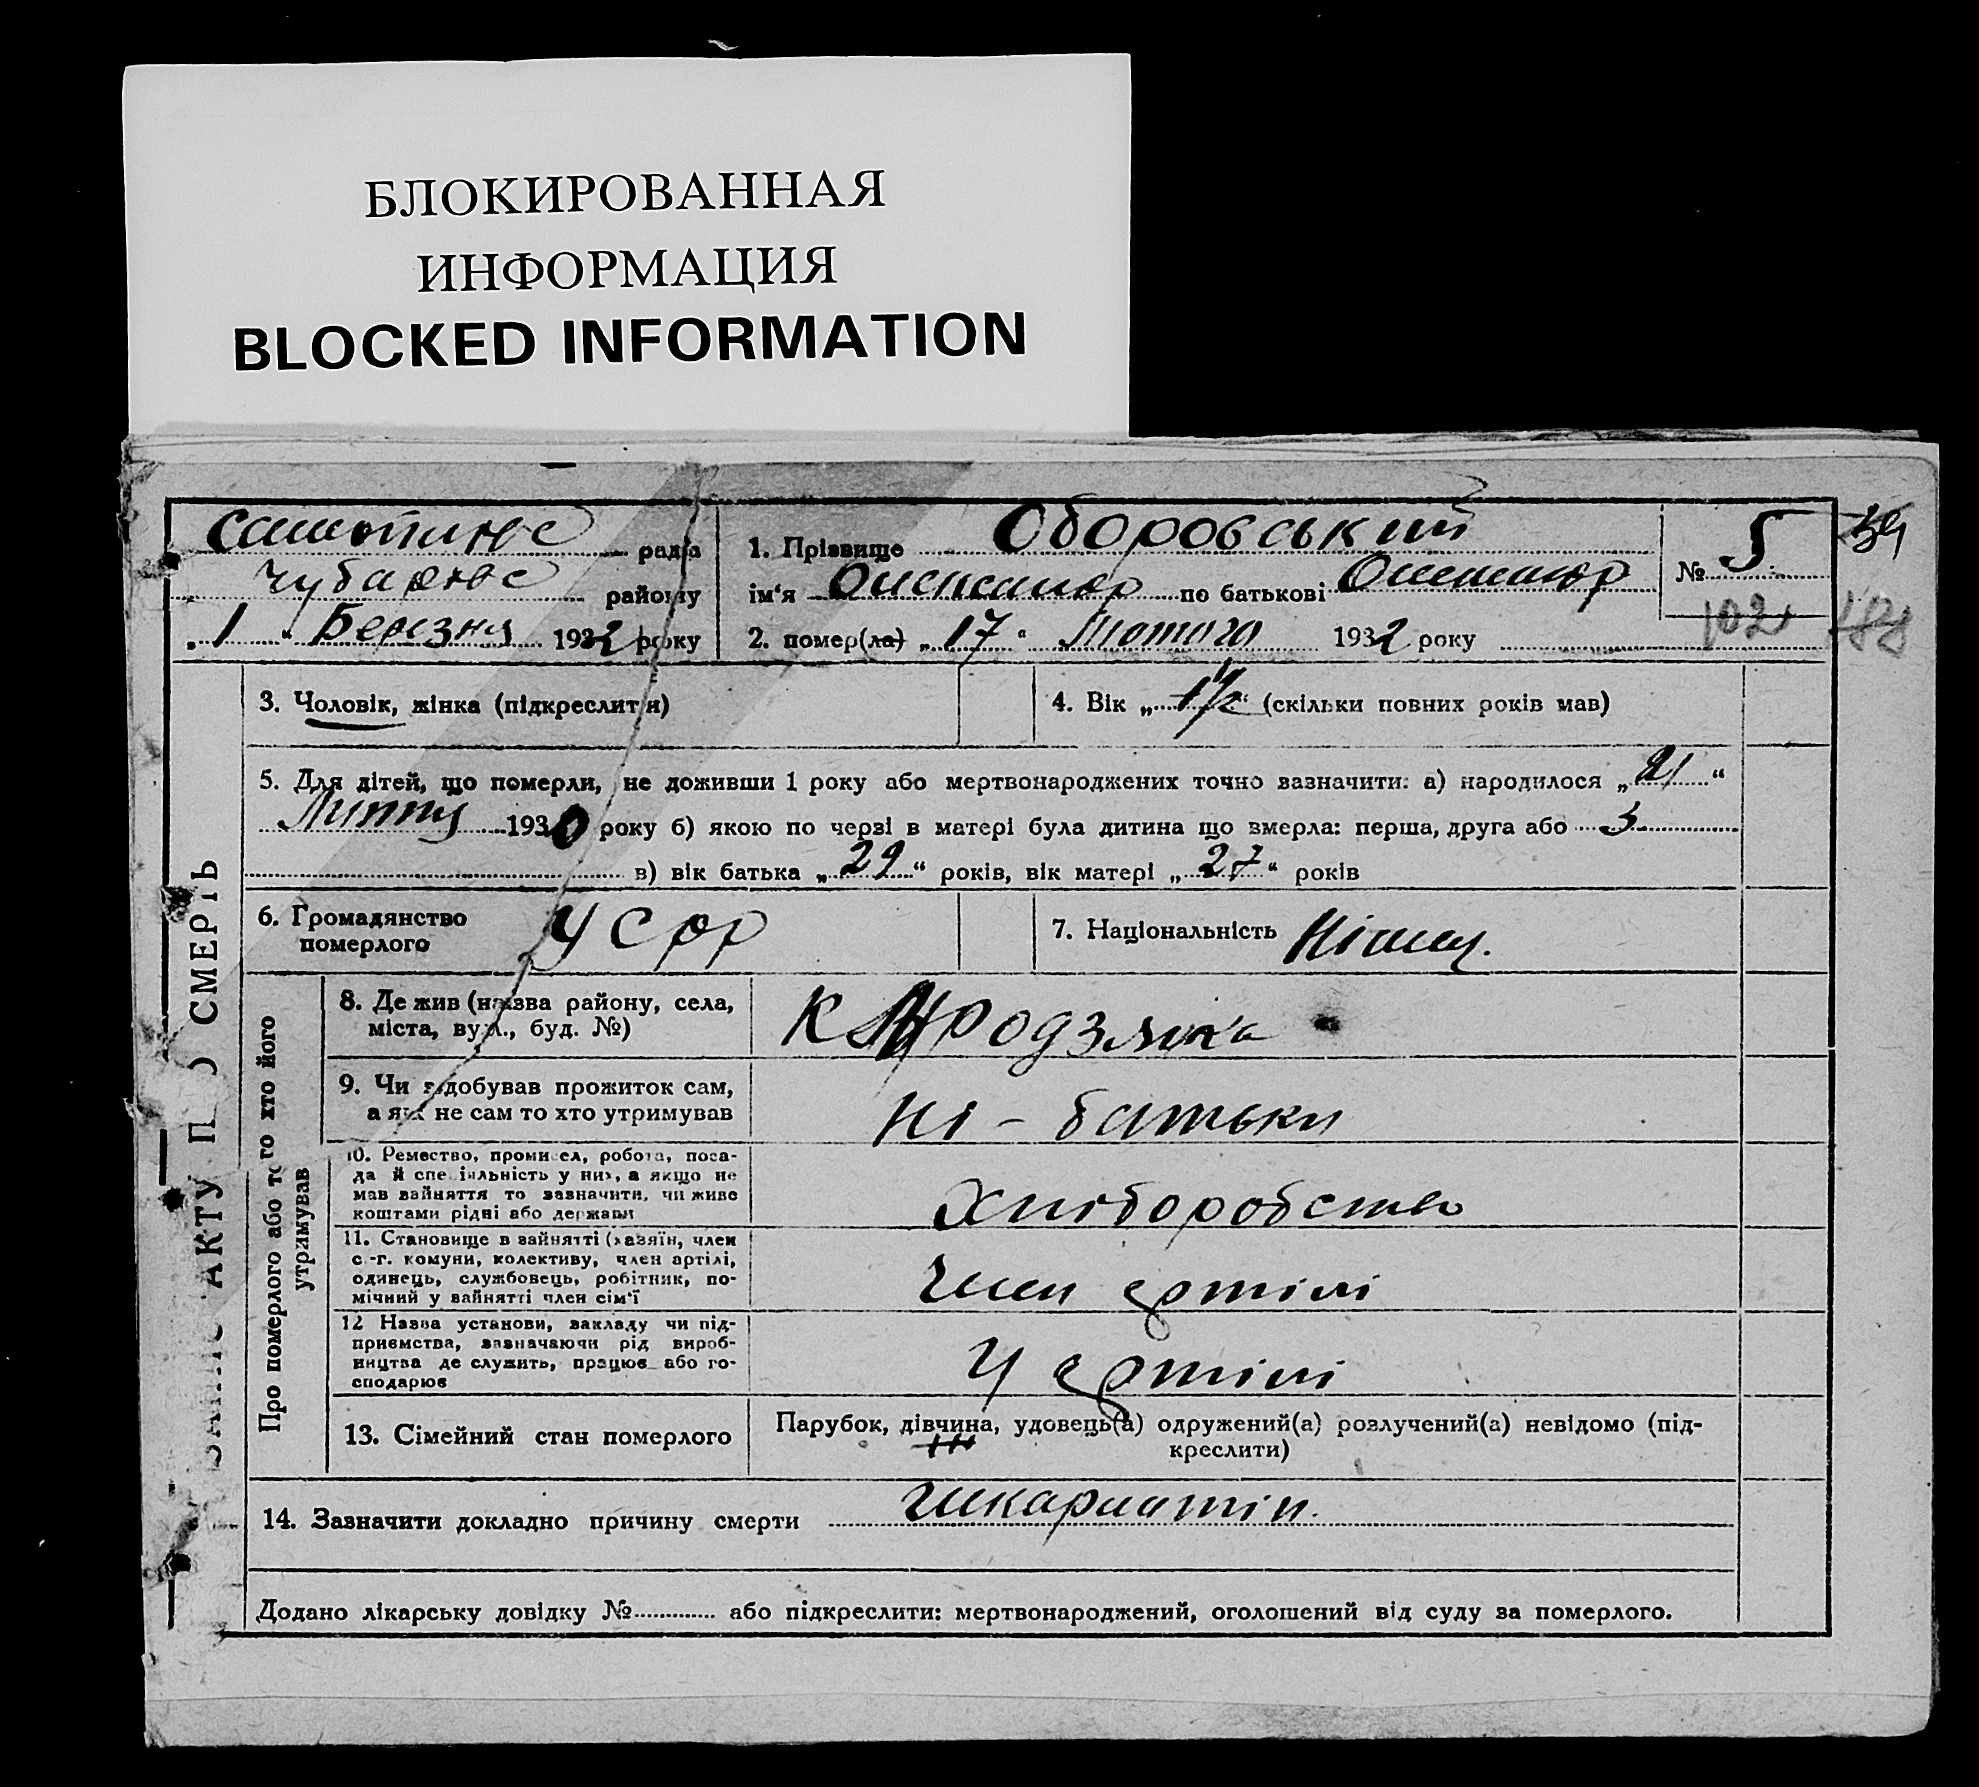 БЛОКИРОВАННАЯ
ИНФОРМАЦИЯ
BLOCKED INFORMATION
ЗАПИС АКТУ ПРО СМЕРТЬ
рада
району
„1“ Березня 1932 року
1. Прізвище Оборовський
ім'я по батькові
2. помер(ла) „17“ Лютого 1932 року
№ 5
39
102
188
3. Чоловік, жінка (підкреслити)
4. Вік „1½“ (скільки повних років мав)
5. Для дітей, що померли, не доживши 1 року або мертвонароджених точно вазначити: а) народилося „21“
Липня 1930 року б) якою по черзі в матері була дитина що вмерла: перша, друга або 3
в) вік батька „29“ років, вік матері „27“ років
6. Громадянство
померлого
УСРР
7. Національність Німец.
Про померлого або того хто його
утримував
8. Де жив (назва району, села,
міста, вул., буд. №)
Родзянка
9. Чи здобував прожиток сам,
а як не сам то хто утримував
Ні - батьки
10. Ремество, промисел, робота, поса-
да й спеціяльність у них, а якщо не
мав вайняття то зазначити, чи живе
коштами рідні або держави
Хліборобство
11. Становище в вайнятті (хазяїн, член
с.-г. комуни, колективу, член артілі,
одинець, службовець, робітник, по-
мічний у вайнятті член сім'ї
Член артілі
12 Назва установи, вакладу чи під-
приємства, вазначаючи рід вироб-
ництва де служить, працює або го-
сподарює
У артілі
13. Сімейний стан померлого
Парубок, дівчина, удовець(а) одружений(а) розлучений(а) невідомо (під-
креслити)
14. Зазначити докладно причину смерти
шкарлатін.
Додано лікарську довідку № або підкреслити: мертвонароджений, оголошений від суду за померлого.